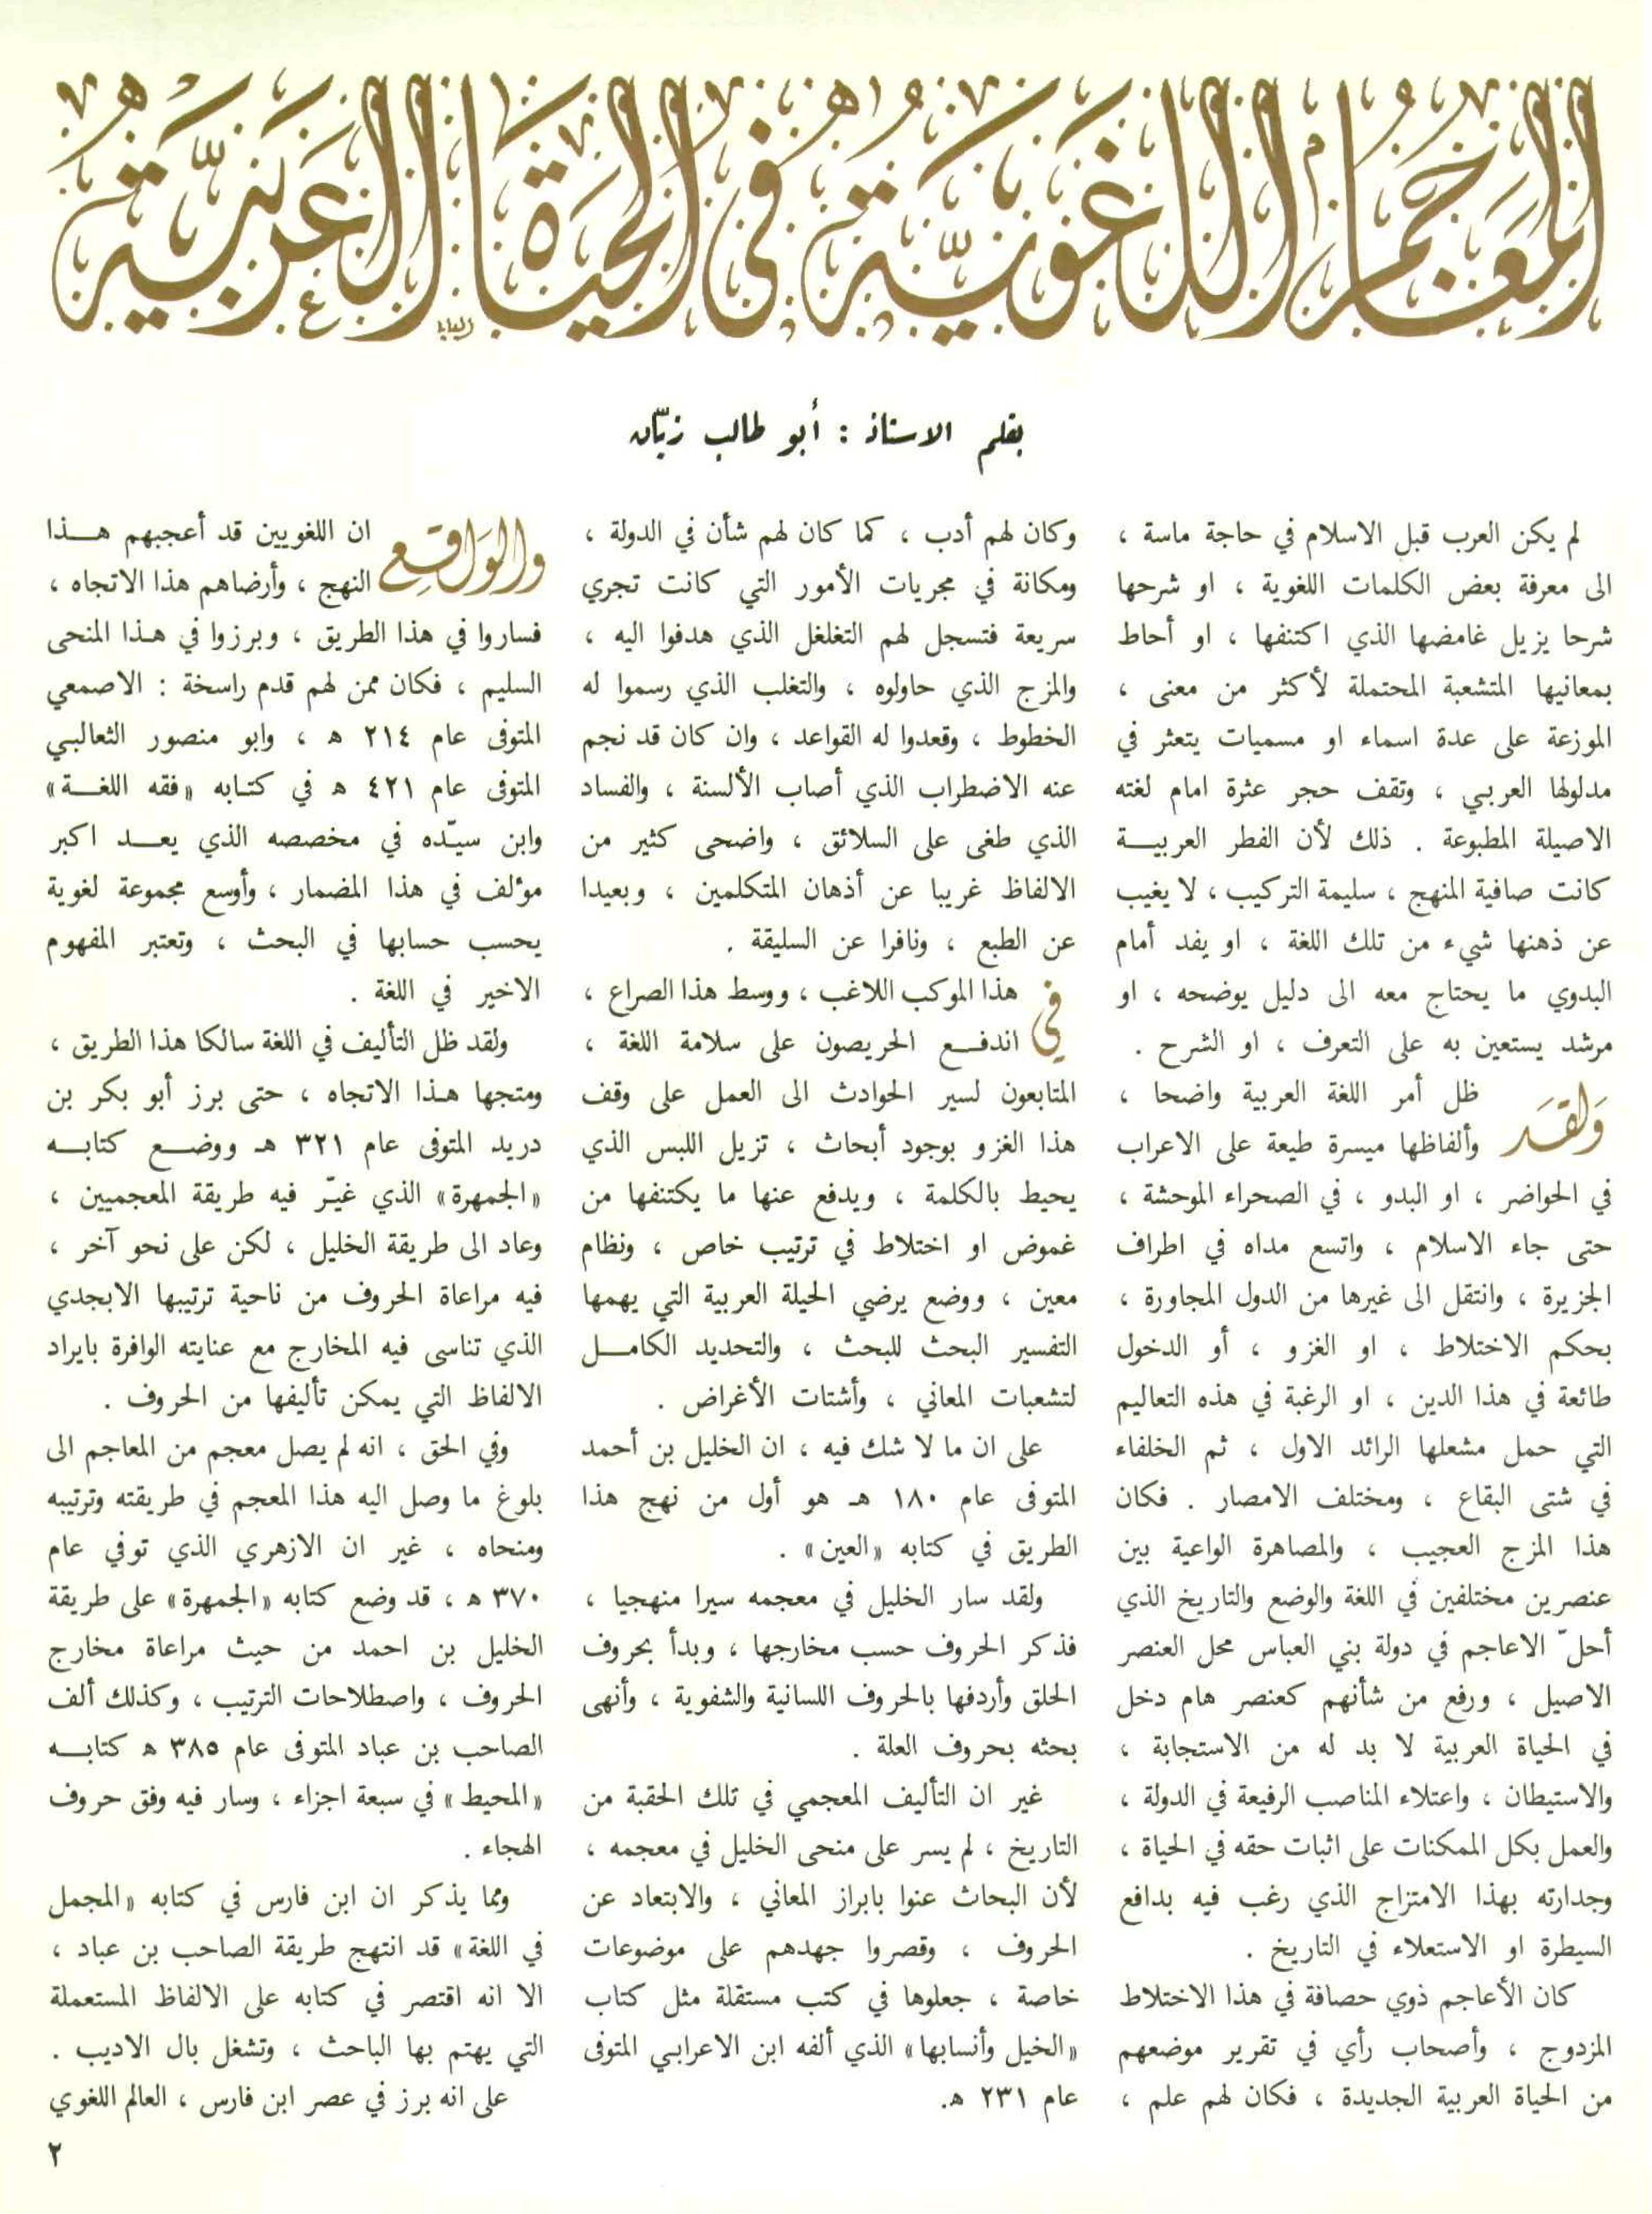 المعاجم اللغوية في الحياة العربية
بقلم الاستاذ : أبو طالب زيّان
لم يكن العرب قبل الاسلام في حاجة ماسة ،
الى معرفة بعض الكلمات اللغوية ، او شرحها
شرحا يزيل غامضها الذي اكتنفها ، او أحاط
بمعانيها المتشعبة المحتملة لأكثر من معنى ،
الموزعة على عدة اسماء او مسميات يتعثر في
مدلولها العربي ، وتقف حجر عثرة امام لغته
الاصيلة المطبوعة . ذلك لأن الفطر العربيـــة
كانت صافية المنهج ، سليمة التركيب ، لا يغيب
عن ذهنها شيء من تلك اللغة ، او يفد أمام
البدوي ما يحتاج معه الى دليل يوضحه ، او
مرشد يستعين به على التعرف ، او الشرح .
وَلقَد ظل أمر اللغة العربية واضحا ،
وألفاظها ميسرة طيعة على الاعراب
في الحواضر ، او البدو ، في الصحراء الموحشة ،
حتى جاء الاسلام ، واتسع مداه في اطراف
الجزيرة ، وانتقل الى غيرها من الدول المجاورة ،
بحكم الاختلاط ، او الغزو ، أو الدخول
طائعة في هذا الدين ، او الرغبة في هذه التعاليم
التي حمل مشعلها الرائد الاول ، ثم الخلفاء
في شتى البقاع ، ومختلف الامصار . فكان
هذا المزج العجيب ، والمصاهرة الواعية بين
عنصرين مختلفين في اللغة والوضع والتاريخ الذي
أحلّ الاعاجم في دولة بني العباس محل العنصر
الاصيل ، ورفع من شأنهم كعنصر هام دخل
في الحياة العربية لا بد له من الاستجابة ،
والاستيطان ، واعتلاء المناصب الرفيعة في الدولة ،
والعمل بكل الممكنات على اثبات حقه في الحياة ،
وجدارته بهذا الامتزاج الذي رغب فيه بدافع
السيطرة او الاستعلاء في التاريخ .
كان الأعاجم ذوي حصافة في هذا الاختلاط
المزدوج ، وأصحاب رأي في تقرير موضعهم
من الحياة العربية الجديدة ، فكان لهم علم ،
وكان لهم أدب ، كما كان لهم شأن في الدولة ،
ومكانة في مجريات الأمور التي كانت تجري
سريعة فتسجل لهم التغلغل الذي هدفوا اليه ،
والمزج الذي حاولوه ، والتغلب الذي رسموا له
الخطوط ، وقعدوا له القواعد ، وان كان قد نجم
عنه الاضطراب الذي أصاب الألسنة ، والفساد
الذي طغى على السلائق ، واضحى كثير من
الالفاظ غريبا عن أذهان المتكلمين ، وبعيدا
عن الطبع ، ونافرا عن السليقة .
في هذا الموكب اللاغب ، ووسط هذا الصراع ،
اندفـــع الحريصون على سلامة اللغة ،
المتابعون لسير الحوادث الى العمل على وقف
هذا الغزو بوجود أبحاث ، تزيل اللبس الذي
يحيط بالكلمة ، ويدفع عنها ما يكتنفها من
غموض او اختلاط في ترتيب خاص ، ونظام
معين ، ووضع يرضي الحيلة العربية التي يهمها
التفسير البحث للبحث ، والتحديد الكامـــل
لتشعبات المعاني ، وأشتات الأغراض .
على ان ما لا شك فيه ، ان الخليل بن أحمد
المتوفى عام ١٨٠ هـ هو أول من نهج هذا
الطريق في كتابه «العين» .
ولقد سار الخليل في معجمه سيرا منهجيا ،
فذكر الحروف حسب مخارجها ، وبدأ بحروف
الحلق وأردفها بالحروف اللسانية والشفوية ، وأنهى
بحثه بحروف العلة .
غير ان التأليف المعجمي في تلك الحقبة من
التاريخ ، لم يسر على منحى الخليل في معجمه ،
لأن البحاث عنوا بابراز المعاني ، والابتعاد عن
الحروف ، وقصروا جهدهم على موضوعات
خاصة ، جعلوها في كتب مستقلة مثل كتاب
«الخيل وأنسابها» الذي ألفه ابن الاعرابي المتوفى
عام ٢٣١ ه.
والوَاقِع ان اللغويين قد أعجبهم هـــذا
النهج ، وأرضاهم هذا الاتجاه ،
فساروا في هذا الطريق ، وبرزوا في هـذا المنحى
السليم ، فكان ممن لهم قدم راسخة : الاصمعي
المتوفى عام ٢١٤ ه ، وابو منصور الثعالبـي
المتوفى عام ٤٢١ ه في كتـابه «فقه اللغـــة»
وابن سيّده في مخصصه الذي يعـــد اكبر
مؤلف في هذا المضمار ، وأوسع مجموعة لغوية
يحسب حسابها في البحث ، وتعتبر المفهوم
الاخير في اللغة .
ولقد ظل التأليف في اللغة سالكا هذا الطريق ،
ومتجها هـذا الاتجاه ، حتى برز أبو بكر بن
دريد المتوفى عام ٣٢١ هـ ووضـــع كتابـــه
«الجمهرة» الذي غيّر فيه طريقة المعجميين ،
وعاد الى طريقة الخليل ، لكن على نحو آخر ،
فيه مراعاة الحروف من ناحية ترتيبها الابجدي
الذي تناسى فيه المخارج مع عنايته الوافرة بايراد
الالفاظ التي يمكن تأليفها من الحروف .
وفي الحق ، انه لم يصل معجم من المعاجم الى
بلوغ ما وصل اليه هذا المعجم في طريقته وترتيبه
ومنحاه ، غير ان الازهري الذي توفي عام
٣٧٠ ه ، قد وضع كتابه «الجمهرة» على طريقة
الخليل بن احمد من حيث مراعاة مخارج
الحروف ، واصطلاحات الترتيب ، وكذلك ألف
الصاحب بن عباد المتوفى عام ٣٨٥ ه كتابـــه
«المحيط» في سبعة اجزاء ، وسار فيه وفق حروف
الهجاء .
ومما يذكر ان ابن فارس في كتابه «المجمل
في اللغة» قد انتهج طريقة الصاحب بن عباد ،
الا انه اقتصر في كتابه على الالفاظ المستعملة
التي يهتم بها الباحث ، وتشغل بال الاديب .
على انه برز في عصر ابن فارس ، العالم اللغوي
٢